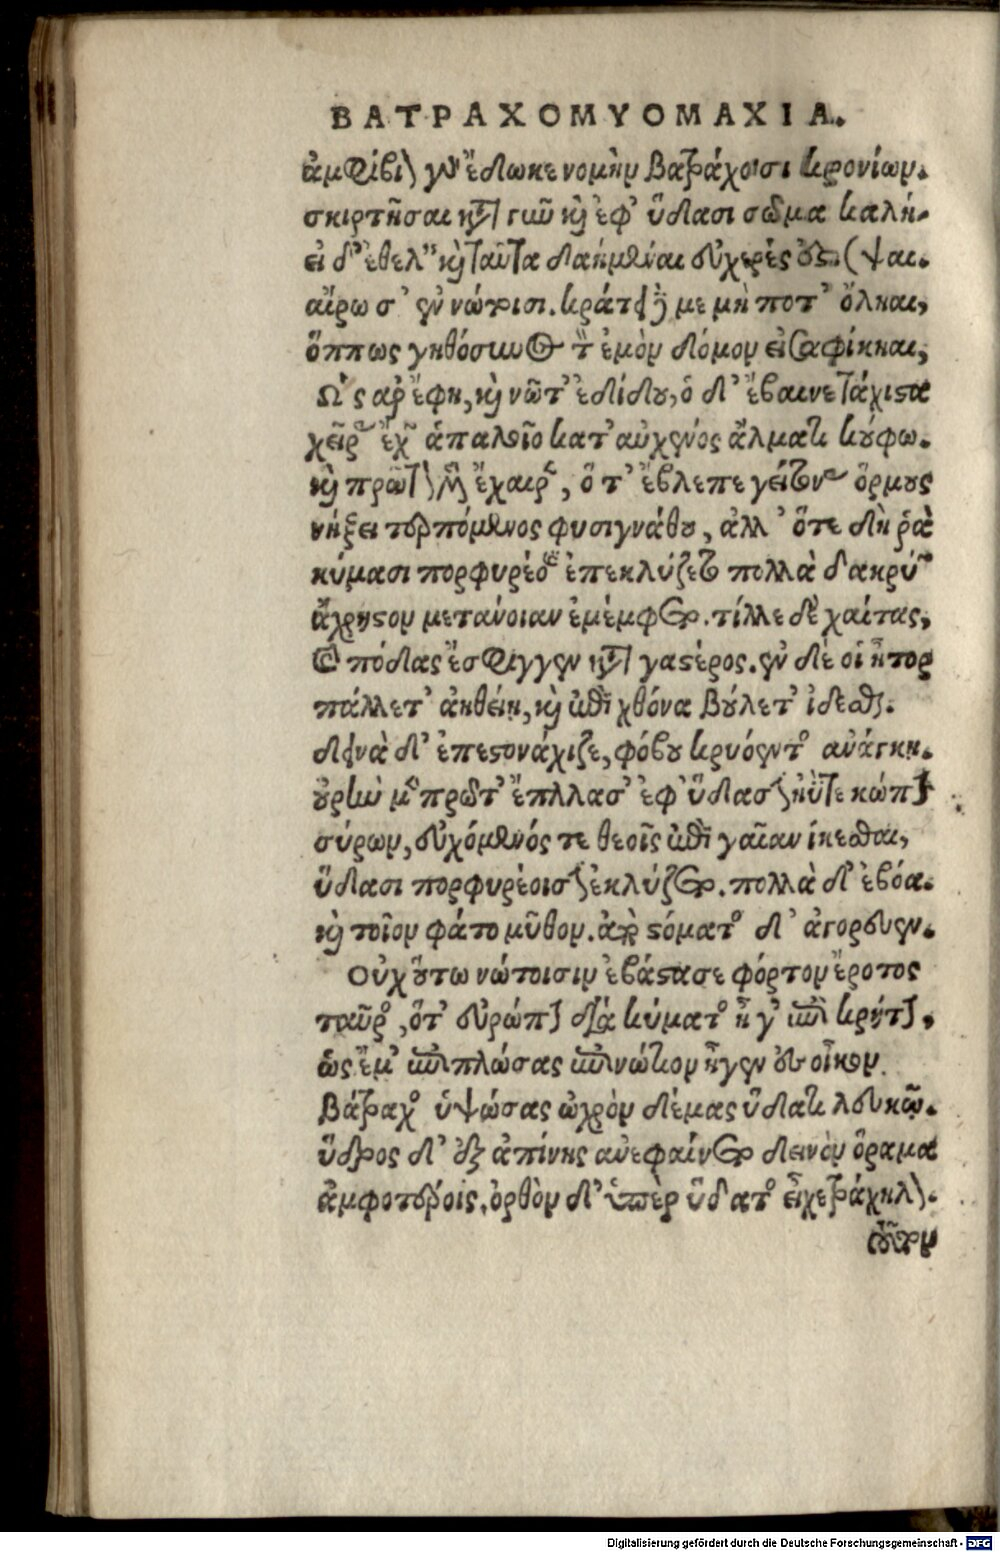 ΒΑΤΡΑΧΟΜΥΟΜΑΧΙΑ.
ἀμφίβιον γὰρ ἔδωκε νομὴν βατράχοισι κρονίων.
σκιρτῆσαι κατὰ γῆν καὶ ἐφ' ὕδασι σῶμα καλύ-
εἰ δ' ἐθέλεις καὶ ταῦτα δαήμεναι εὐχερές ἐστι. (ψαι.
αἴρω σ' ἐν νώτοισι. κράτει δέ με μή ποτ' ὄληαι,
ὅππως γηθόσυνος τὸν ἐμὸν δόμον εἰσαφίκηαι,
Ὣς ἄρ' ἔφη, καὶ νῶτ' ἐδίδου, ὁ δ' ἔβαινε τάχιστα
χεῖρας ἔχων ἁπαλοῖο κατ' αὐχένος ἅλματι κούφῳ.
καὶ πρῶτον μὲν ἔχαιρεν, ὅτ' ἔβλεπε γείτονας ὅρμους
νήξει τερπόμενος φυσιγνάθου, ἀλλ' ὅτε δή ῥα
κύμασι πορφυρέοις ἐπεκλύζετο πολλὰ δακρύων
ἄχρηστον μετάνοιαν ἐμέμφετο. τίλλε δὲ χαίτας,
καὶ πόδας ἔσφιγγεν κατὰ γαστέρος. ἐν δέ οἱ ἦτορ
πάλλετ' ἀηθείῃ, καὶ ἐπὶ χθόνα βούλετ' ἰδέσθαι.
δεινὰ δ' ἐπεστονάχιζε, φόβου κρυόεντος ἀνάγκῃ.
οὐρὴν μὲν πρῶτ' ἔπλασ' ἐφ' ὕδασιν ἠύτε κώπην
σύρων, εὐχόμενός τε θεοῖς ἐπὶ γαῖαν ἱκέσθαι,
ὕδασι πορφυρέοισιν ἐκλύζετο. πολλὰ δ' ἐβόα.
καὶ τοῖον φάτο μῦθον. ἀπὸ στόματος δ' ἀγόρευεν.
Οὐχ οὕτω νώτοισιν ἐβάστασε φόρτον ἔρωτος
ταῦρος, ὅτ' εὐρώπην διὰ κύματος ἦγ' ἐπὶ κρήτην,
ὡς ἔμ' ἐπιπλώσας ἐπινώτιον ἦγεν ἐς οἶκον.
βάτραχος ὑψώσας ὠχρὸν δέμας ὕδατι λευκῷ.
ὕδρος δ' ἐξαπίνης ἀνεφαίνετο δεινὸν ὅραμα
ἀμφοτέροις. ὀρθὸν δ' ὑπὲρ ὕδατος εἶχε τράχηλον.
τοῦτον
Digitalisierung gefördert durch die Deutsche Forschungsgemeinschaft - DFG